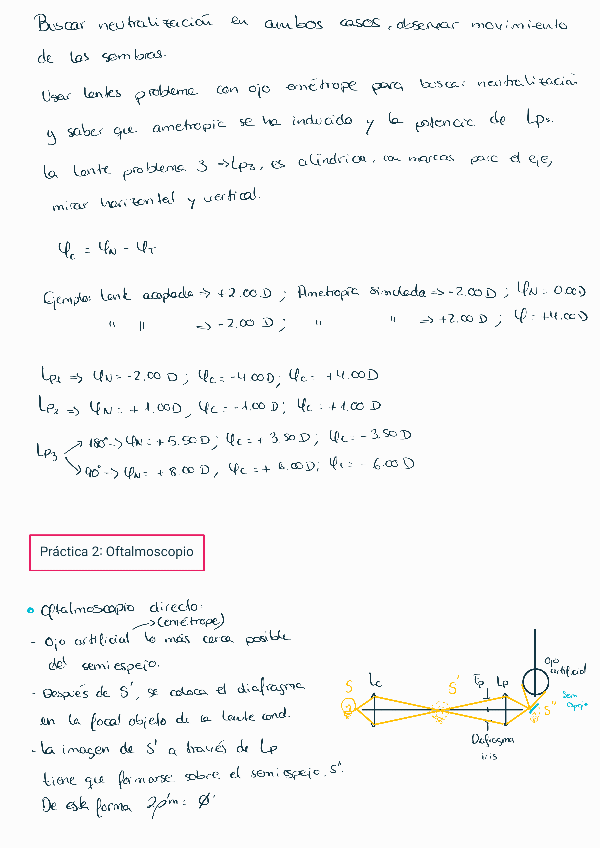 Buscar neutralización en ambos casos, observar movimiento
de las sombras.
Usar lentes problema con ojo emétrope para buscar neutralización
y saber que ametropia se ha inducido y la potencia de Lps.
La lente problema 3 → Lp3, es cilíndrica, con marcas para el eje,
mirar horizontal y vertical.
φc = φN - φT
Ejemplo: lente acoplada → +2.00 D ; Ametropía simulada → -2.00 D ; φN = 0.00D
" " → -2.00 D ; " " → +2.00 D ; φ = +4.00D
Lp1 ⇒ φN = -2.00 D ; φc = -4.00D ; φc = +4.00D
Lp2 ⇒ φN = +1.00D, φc = -1.00 D ; φc = +1.00 D
Lp3 180° → φN = +5.50 D ; φc = +3.50 D ; φc = -3.50 D
90° → φN = +8.00 D, φc = +6.00 D ; φc = -6.00 D
Práctica 2: Oftalmoscopio
Oftalmoscopio directo.
→ (emétrope)
- Ojo artificial lo más cerca posible
del semiespejo.
- Después de S', se coloca el diafragma
en la focal objeto de la lente cond.
- La imagen de S' a través de Lp
tiene que formarse sobre el semiespejo, S'.
De esta forma 2ρ'm = Ø'
S Lc S' Fp Lp S''
Ojo
artificial
Diafragma
iris